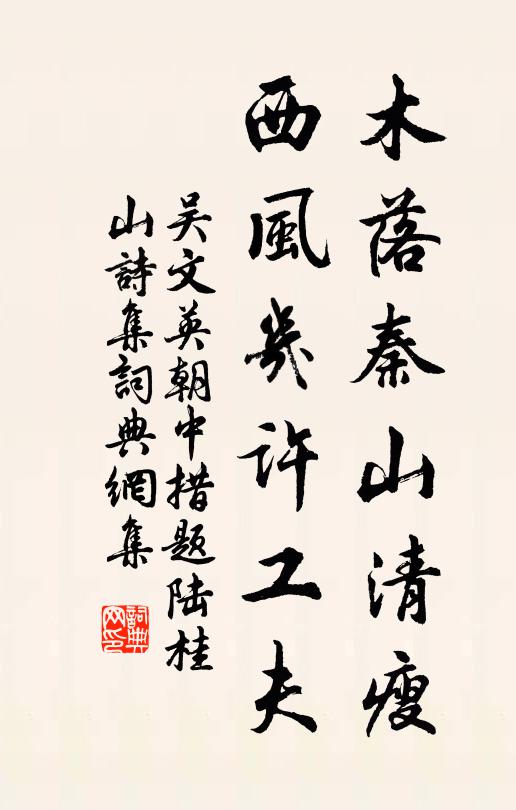 木落秦山清瘦
西風幾許工夫
吴文英朝中措题陆桂
山詩集詞典網集
詞典網印